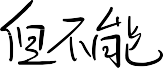 但不能